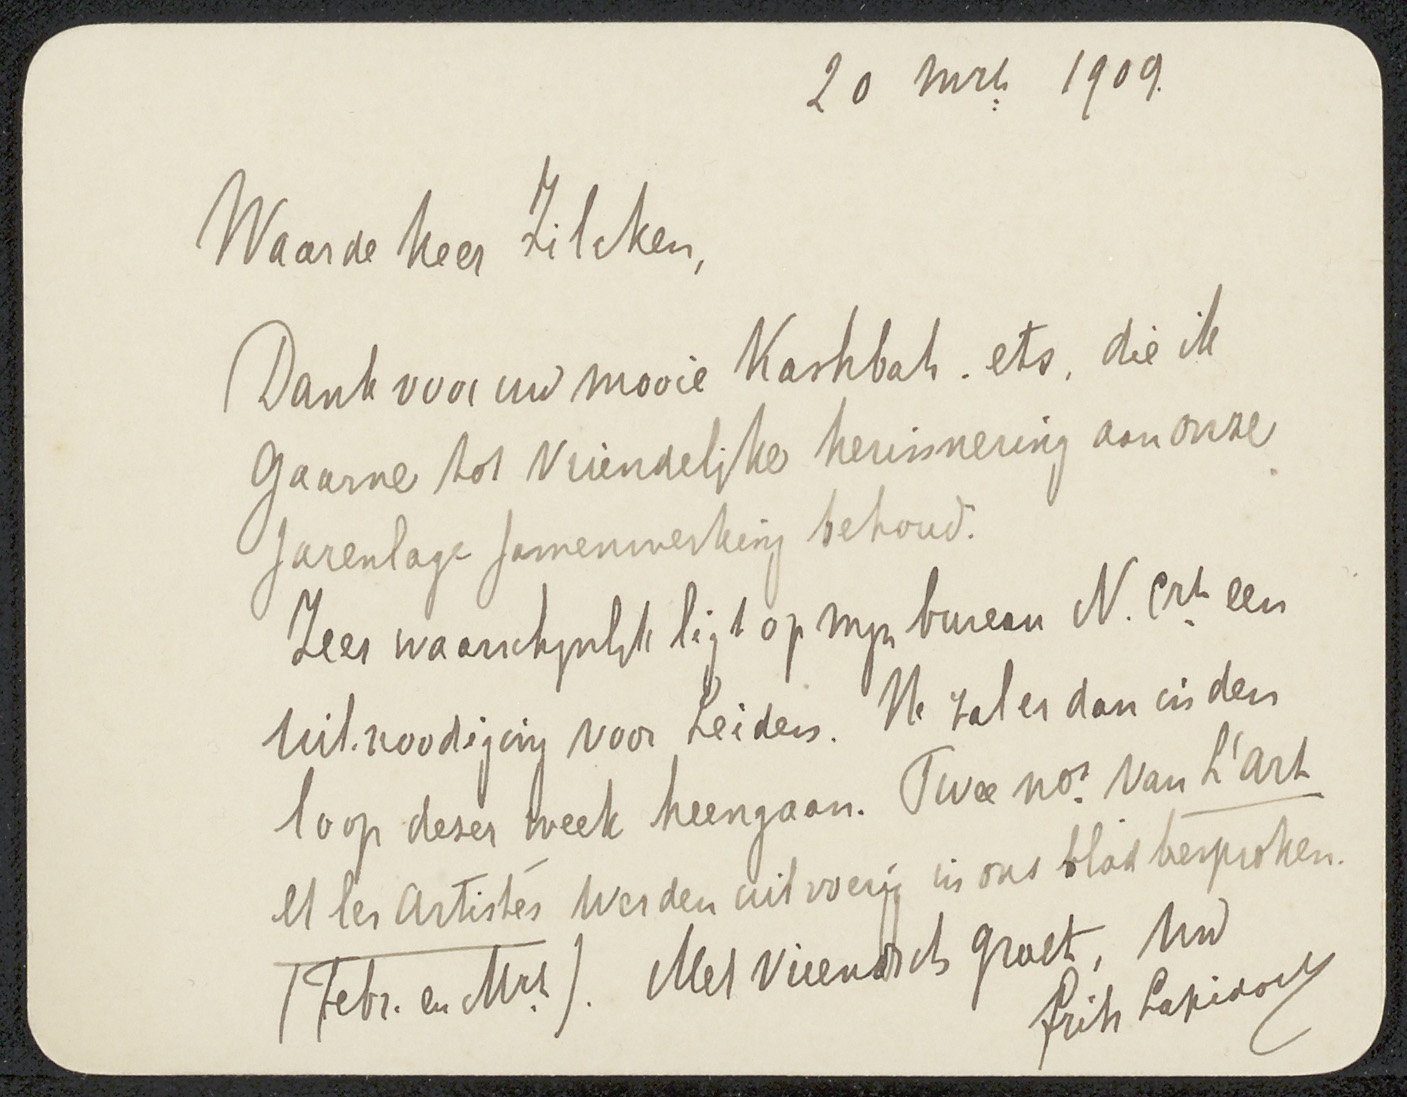 20 Mrt. 1909.
Waarde heer Zilcken,
Dank voor uw mooie Kashbah-ets, die ik
gaarne tot vriendelijke herinnering aan onze
jarenlage samenwerking behoud.
Zeer waarschijnlijk ligt op mijn bureau N. Crt. een
uitnoodiging voor Leiden. Ik zal er dan in den
loop dezer week heengaan. Twee nos. van L'art
et les artistes werden uitvoerig in ons blad besproken.
(Febr. en Mrt.). Met vriendsch groet, Uw
Frits Lapidoth